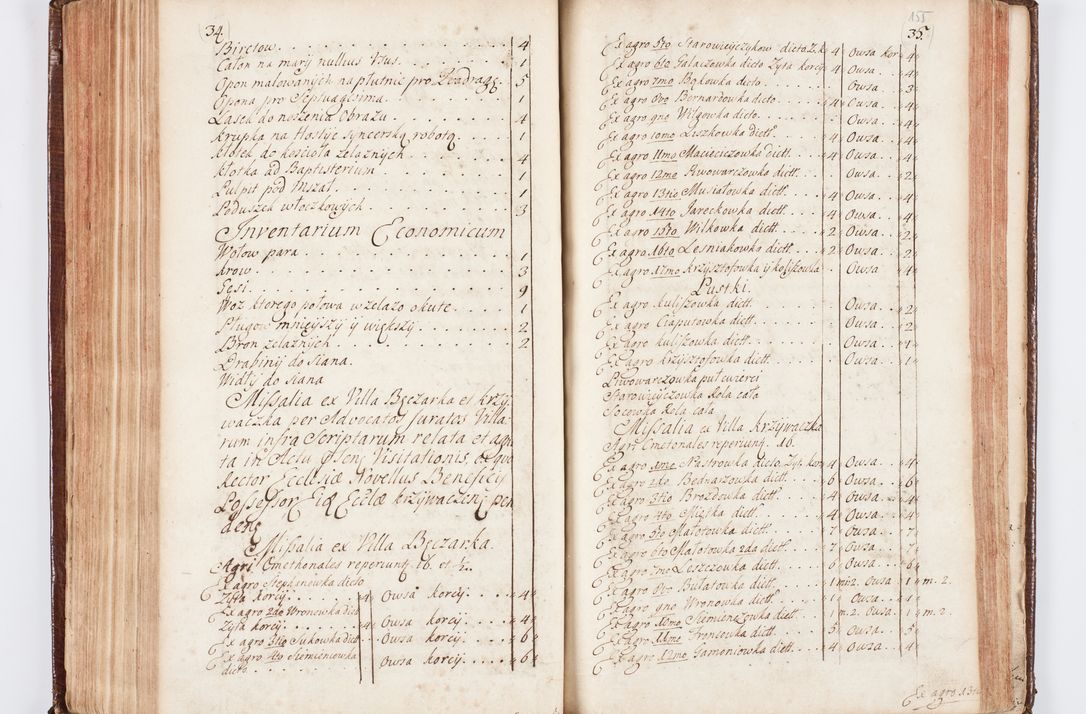 34
Biretow 4
Całon na mary nullius Usus 1
Opon malowanych na płutnie pro Quadrag: 5
Opona pro Septuagesima 1
Lasek do noszenia Obrazu 4
Krupka na Hostye syncerską robotą 1
Kłotek do kościoła żelaznych 4
Kłotka ad Baptisterium 1
Pulpit pod Mszał 1
Poduszek włoczkowych 3
Inventarium Economicum
Wołow para 1
Krow 3
Gesi 9
Woz ktorego połowa w żelazo okute 1
Pługow mnieyszy y większy 2
Bron żelaznych 2
Drabiny do siana
Widły do siana
Missalia ex Villa Bęczarka et krzy-
waczka per Advocatos juratos Villa-
rum infra Scriptarum relata et agni-
ta in Actu Visitationis, de quo
Rector Ecclesiæ Novellus Beneficij
Possessor Ecclæ krzywaczen pen
dens
Missalia ex Villa Bęczarka.
Agri Cmethonales reperiunt 16. et
Ex agro Stephanowka dicto
Zyta korcy 4 Owsa korcy 4
Ex agro 2do Wronowka dict
Zyta korcy 4 Owsa korcy 4
Ex agro 3tio Sukowka dict Owsa korcy 6
Ex agro 4to Siemieniowka
dicto Owsa korcy 6
155
35
Ex agro 5to Starowieyczykow dicto Z. k 4 Owsa kor 4
Ex agro 6to Gałaczowka dicto Zyta korcy 4 Owsa 4
Ex agro 7mo Bąkowka dicto Owsa 3
Ex agro 8vo Bernardowka dicto 4 Owsa 4
Ex agro 9no Wilgowka dicto Owsa 4
Ex agro 10mo Liszkowka dictt 4 Owsa 4
Ex agro 11mo Macieciczowka dictt 4 Owsa 4
Ex agro 12mo Piwowarczowka dictt Owsa 2
Ex agro 13tio Musiałowka dictt 4 Owsa 4
Ex agro 14to Jareckowka dictt 4 Owsa 4
Ex agro 15to Wilkowka dictt 2 Owsa 2
Ex agro 16to Lesniakowko dictt 2 Owsa 2
Ex agro 17mo krzysztofowka y koliszowka Owsa 4
Pustki.
Ex agro kuliszowka dictt Owsa 2
Ex agro Ciaputowka dictt Owsa 2
Ex agro kuliszowka dictt Owsa 2
Ex agro krzysztofowka dictt Owsa 1
Piwowarczowka puł cwierci
Starowieyczowka Rola cała
Socowka Rola cała
Missalia ex Villa krzywaczka
Agri Cmetonales reperiunt 16.
Ex agro 1mo Nastrowka dicto Zyt. kor 4 Owsa 4
Ex agro 2do Bednarzowka dictt 6 Owsa 6
Ex agro 3tio Brozdowka dictt 4 Owsa 4
Ex agro 4to Miąska dictt 4 Owsa 4
Ex agro 5to Małotowka dictt 7 Owsa 7
Ex agro 6to Małotowka 2da dictt 7 Owsa 7
Ex agro 7mo Leszczowka dictt 6 Owsa 6
Ex agro 8vo Bułatowka dictt 1 m 2. Owsa 1 m. 2.
Ex agro 9no Wronowka dictt 1 Owsa 1
Ex agro 10mo Siemienzowka dictt 1 m. 2. Owsa 1 m. 2.
Ex agro 11mo Froncowka dictt 5 Owsa 5
Ex agro 12mo Gamoniowka dictt 4 Owsa 4
Ex agro 13tio